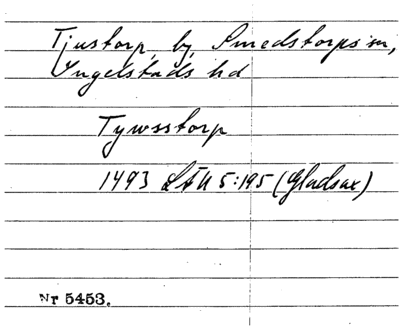 Tjustorp, by, Smedstorps sn,
Ingelstads hd
Tywsstorp
1493 LÄU 5:195 (Gladsax)
Nr 5453.